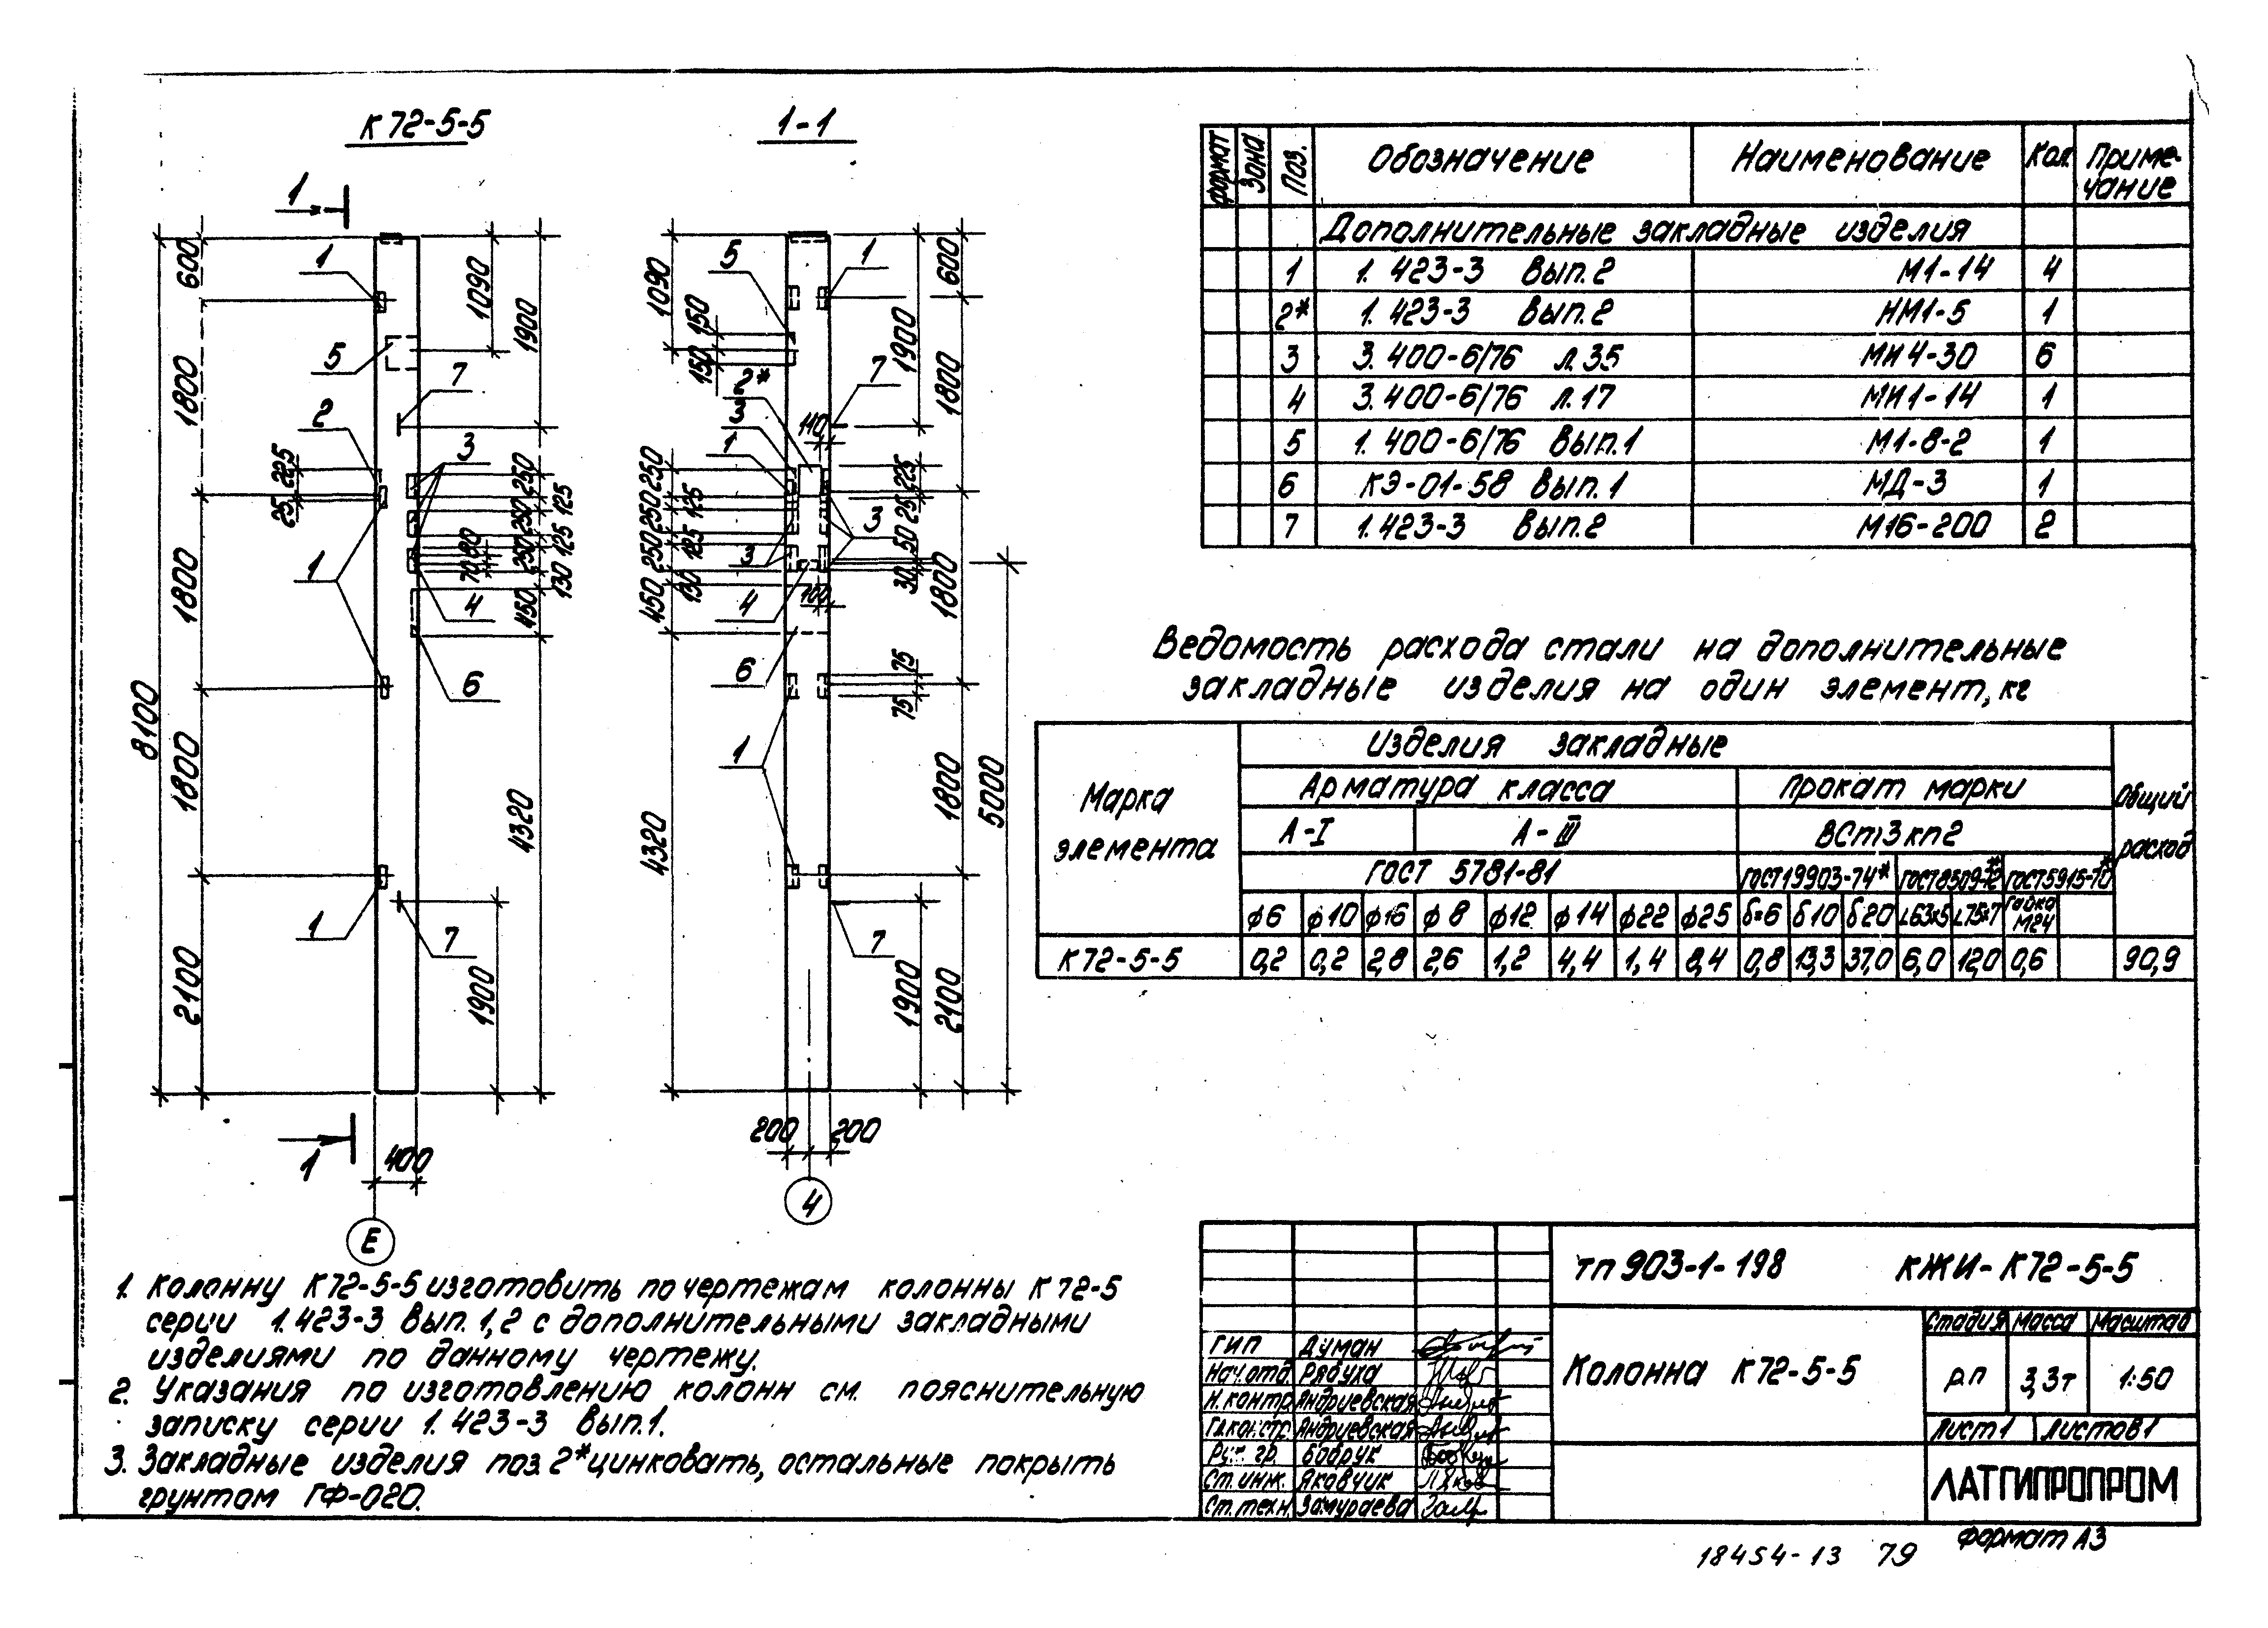 К 72-5-5
1-1
1
600
1800
1800
1800
2100
8100
1090
1900
225
25
250
125
250
125
250
130
450
80
70
4320
1900
400
Е
1
5
7
2
3
1
4
6
1
7
1
1090
150
150
250
125
250
125
250
130
450
4320
5
2*
3
1
110
3
4
100
6
1
1
7
3
7
600
1900
1800
225
25
50
30
1800
75
75
1800
5000
1900
2100
200
200
4
формат Зона Поз. Обозначение Наименование Кол. Приме-
чание
Дополнительные закладные изделия
1 1.423-3 Вып.2 М1-14 4
2* 1.423-3 Вып.2 НМ1-5 1
3 3.400-6/76 л.35 МИ4-30 6
4 3.400-6/76 л.17 МИ1-14 1
5 1.400-6/76 Вып.1 М1-8-2 1
6 КЭ-01-58 Вып.1 МД-3 1
7 1.423-3 Вып.2 М16-200 2
Ведомость расхода стали на дополнительные
закладные изделия на один элемент, кг
Марка
элемента
Изделия закладные
Общий
расход
Арматура класса Прокат марки
А-I А-III ВСт3кп2
ГОСТ 5781-81 ГОСТ19903-74* ГОСТ8509-72* ГОСТ5915-70*
ф6 ф10 ф16 ф8 ф12 ф14 ф22 ф25 δ=6 δ10 δ20 L63x5 L75x7 Гайка М24
К72-5-5 0,2 0,2 2,8 2,6 1,2 4,4 1,4 8,4 0,8 13,3 37,0 6,0 12,0 0,6 90,9
1. Колонну К72-5-5 изготовить по чертежам колонны К72-5
серии 1.423-3 Вып. 1,2 с дополнительными закладными
изделиями по данному чертежу.
2. Указания по изготовлению колонн см. пояснительную
записку серии 1.423-3 Вып.1.
3. Закладные изделия поз. 2* цинковать, остальные покрыть
грунтом ГФ-020.
ТП 903-1-198 КЖИ-К72-5-5
Колонна К72-5-5
Стадия Масса Масштаб
РП 3,3т 1:50
Лист 1 Листов 1
ЛАТГИПРОПРОМ
ГИП Думан
Нач.отд. Рябуха
Н.контр. Андриевская
Гл.констр. Андриевская
Рук. гр. Бобрук
Ст.инж. Якавчик
Ст.техн. Замураева
Формат А3
18454-13 79